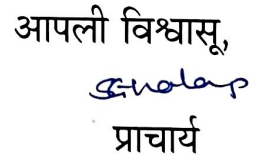 आपली विश्वासू,
प्राचार्य